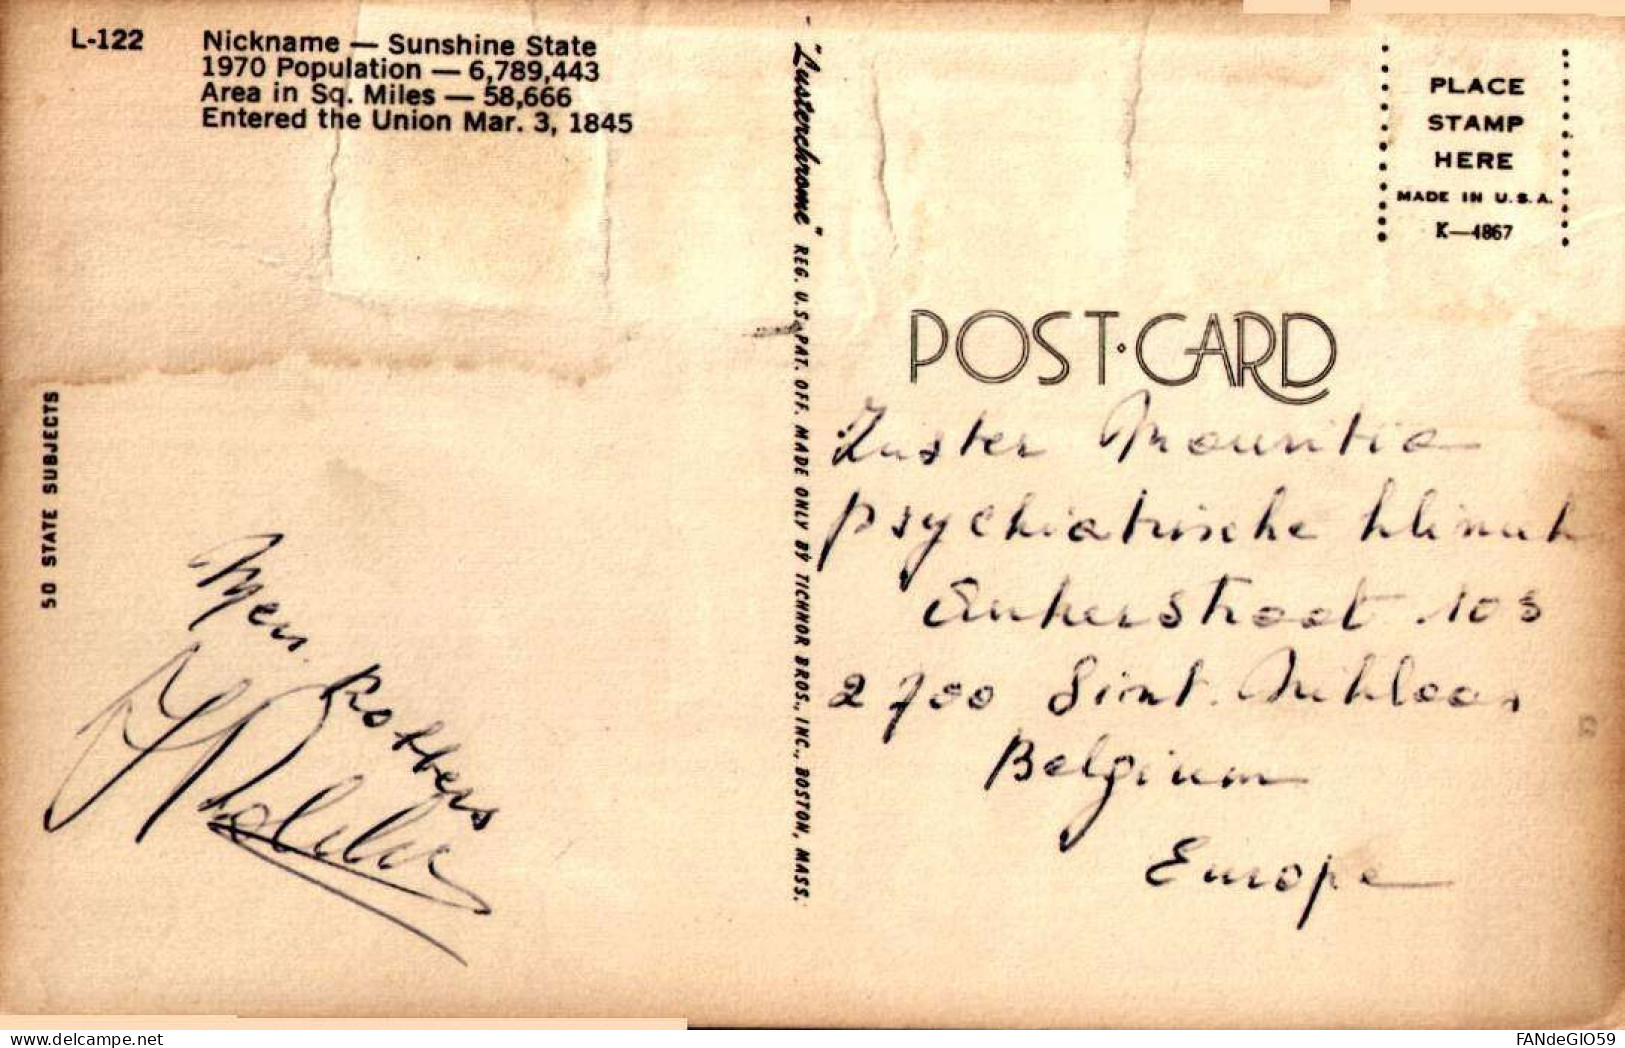 L-122
Nickname — Sunshine State
1970 Population — 6,789,443
Area in Sq. Miles — 58,666
Entered the Union Mar. 3, 1845
50 STATE SUBJECTS
"Lusterchrome" REG. U.S. PAT. OFF. MADE ONLY BY TICHNOR BROS., INC., BOSTON, MASS.
PLACE
STAMP
HERE
MADE IN U.S.A.
K—4867
POST·CARD
Zuster Mauritia
psychiatrische kliniek
Ankerstraat 103
2700 Sint. Niklaas
Belgium
Europe
www.delcampe.net
FANdeGIO59